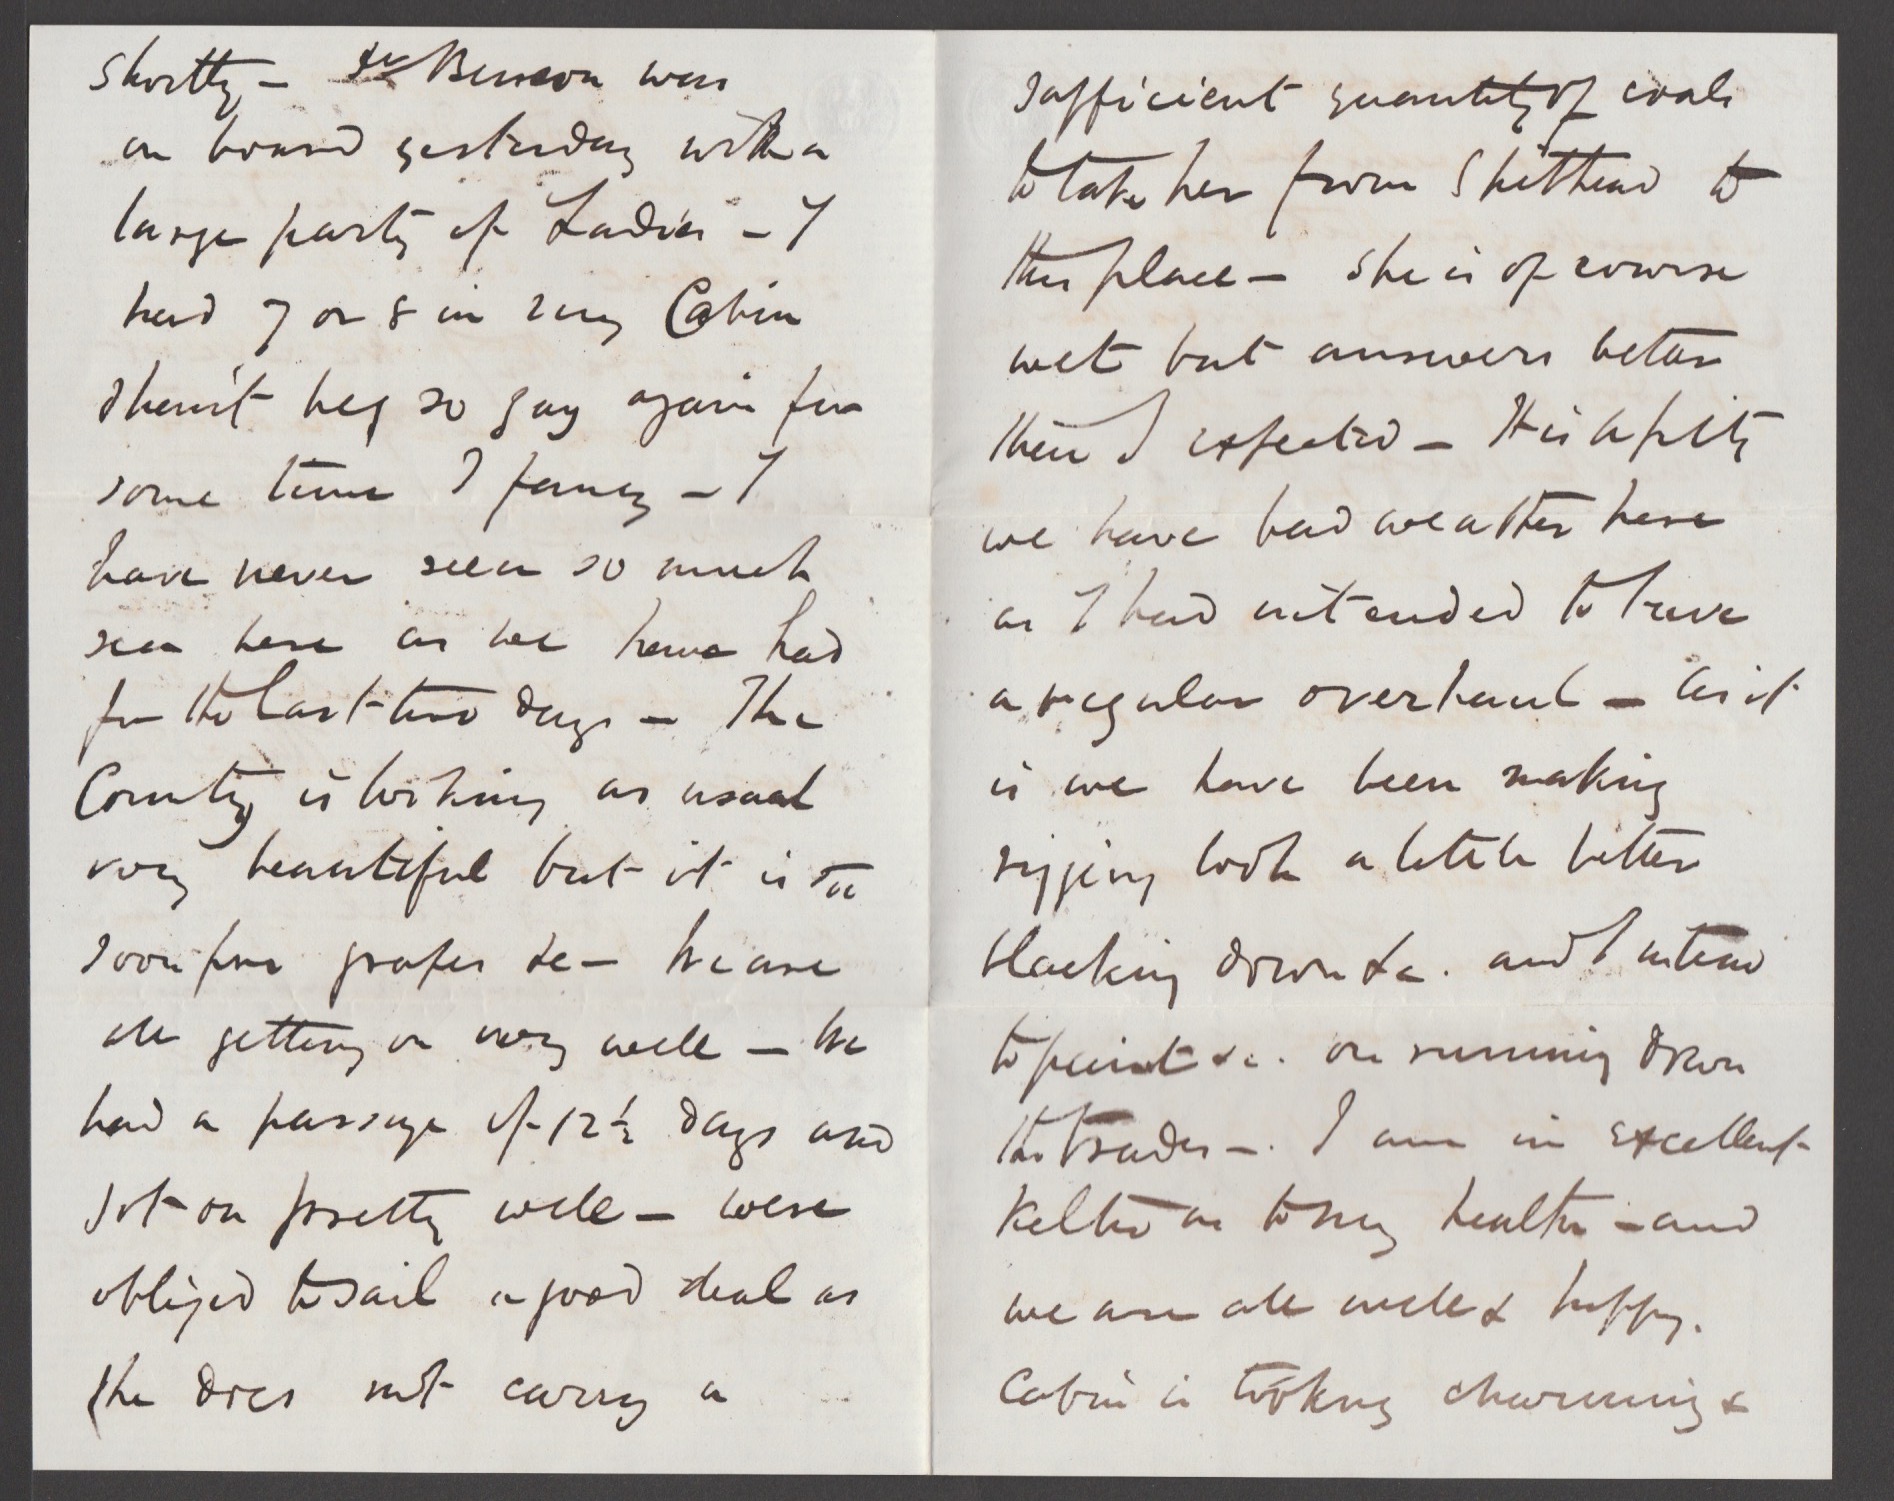 Shortly – Benson was
on board yesterday with a
large party of Ladies – I
had 7 or 8 in my Cabin
Shan't be so gay again for
some time I fancy – I
have never seen so much
sea here as we have had
for the last two days – The
County is looking as usual
very beautiful but it is too
soon for grapes &c – We are
all getting on very well – We
had a passage of 12½ days and
got on pretty well – were
obliged to sail a good deal as
she does not carry a
sufficient quantity of coals
to take her from Spithead to
this place – She is of course
wet but answers better
than I expected – It is a pity
we have bad weather here
as I had intended to have
a regular overhaul – As it
is we have been making
rigging look a little better
blacking down &c. and I intend
to paint &c. on running down
the trades –. I am in excellent
Kelter as to my health – and
we are all well & happy.
Cabin is looking charming &